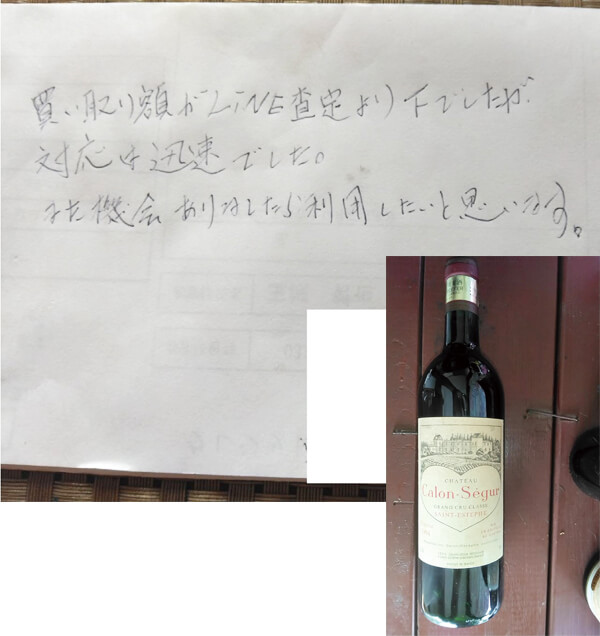 買い取り額がLiNE査定より下でしたが、
対応は迅速でした。
また機会ありましたら利用したいと思います。
CHATEAU
Calon-Ségur
GRAND CRU CLASSÉ
SAINT-ESTÈPHE